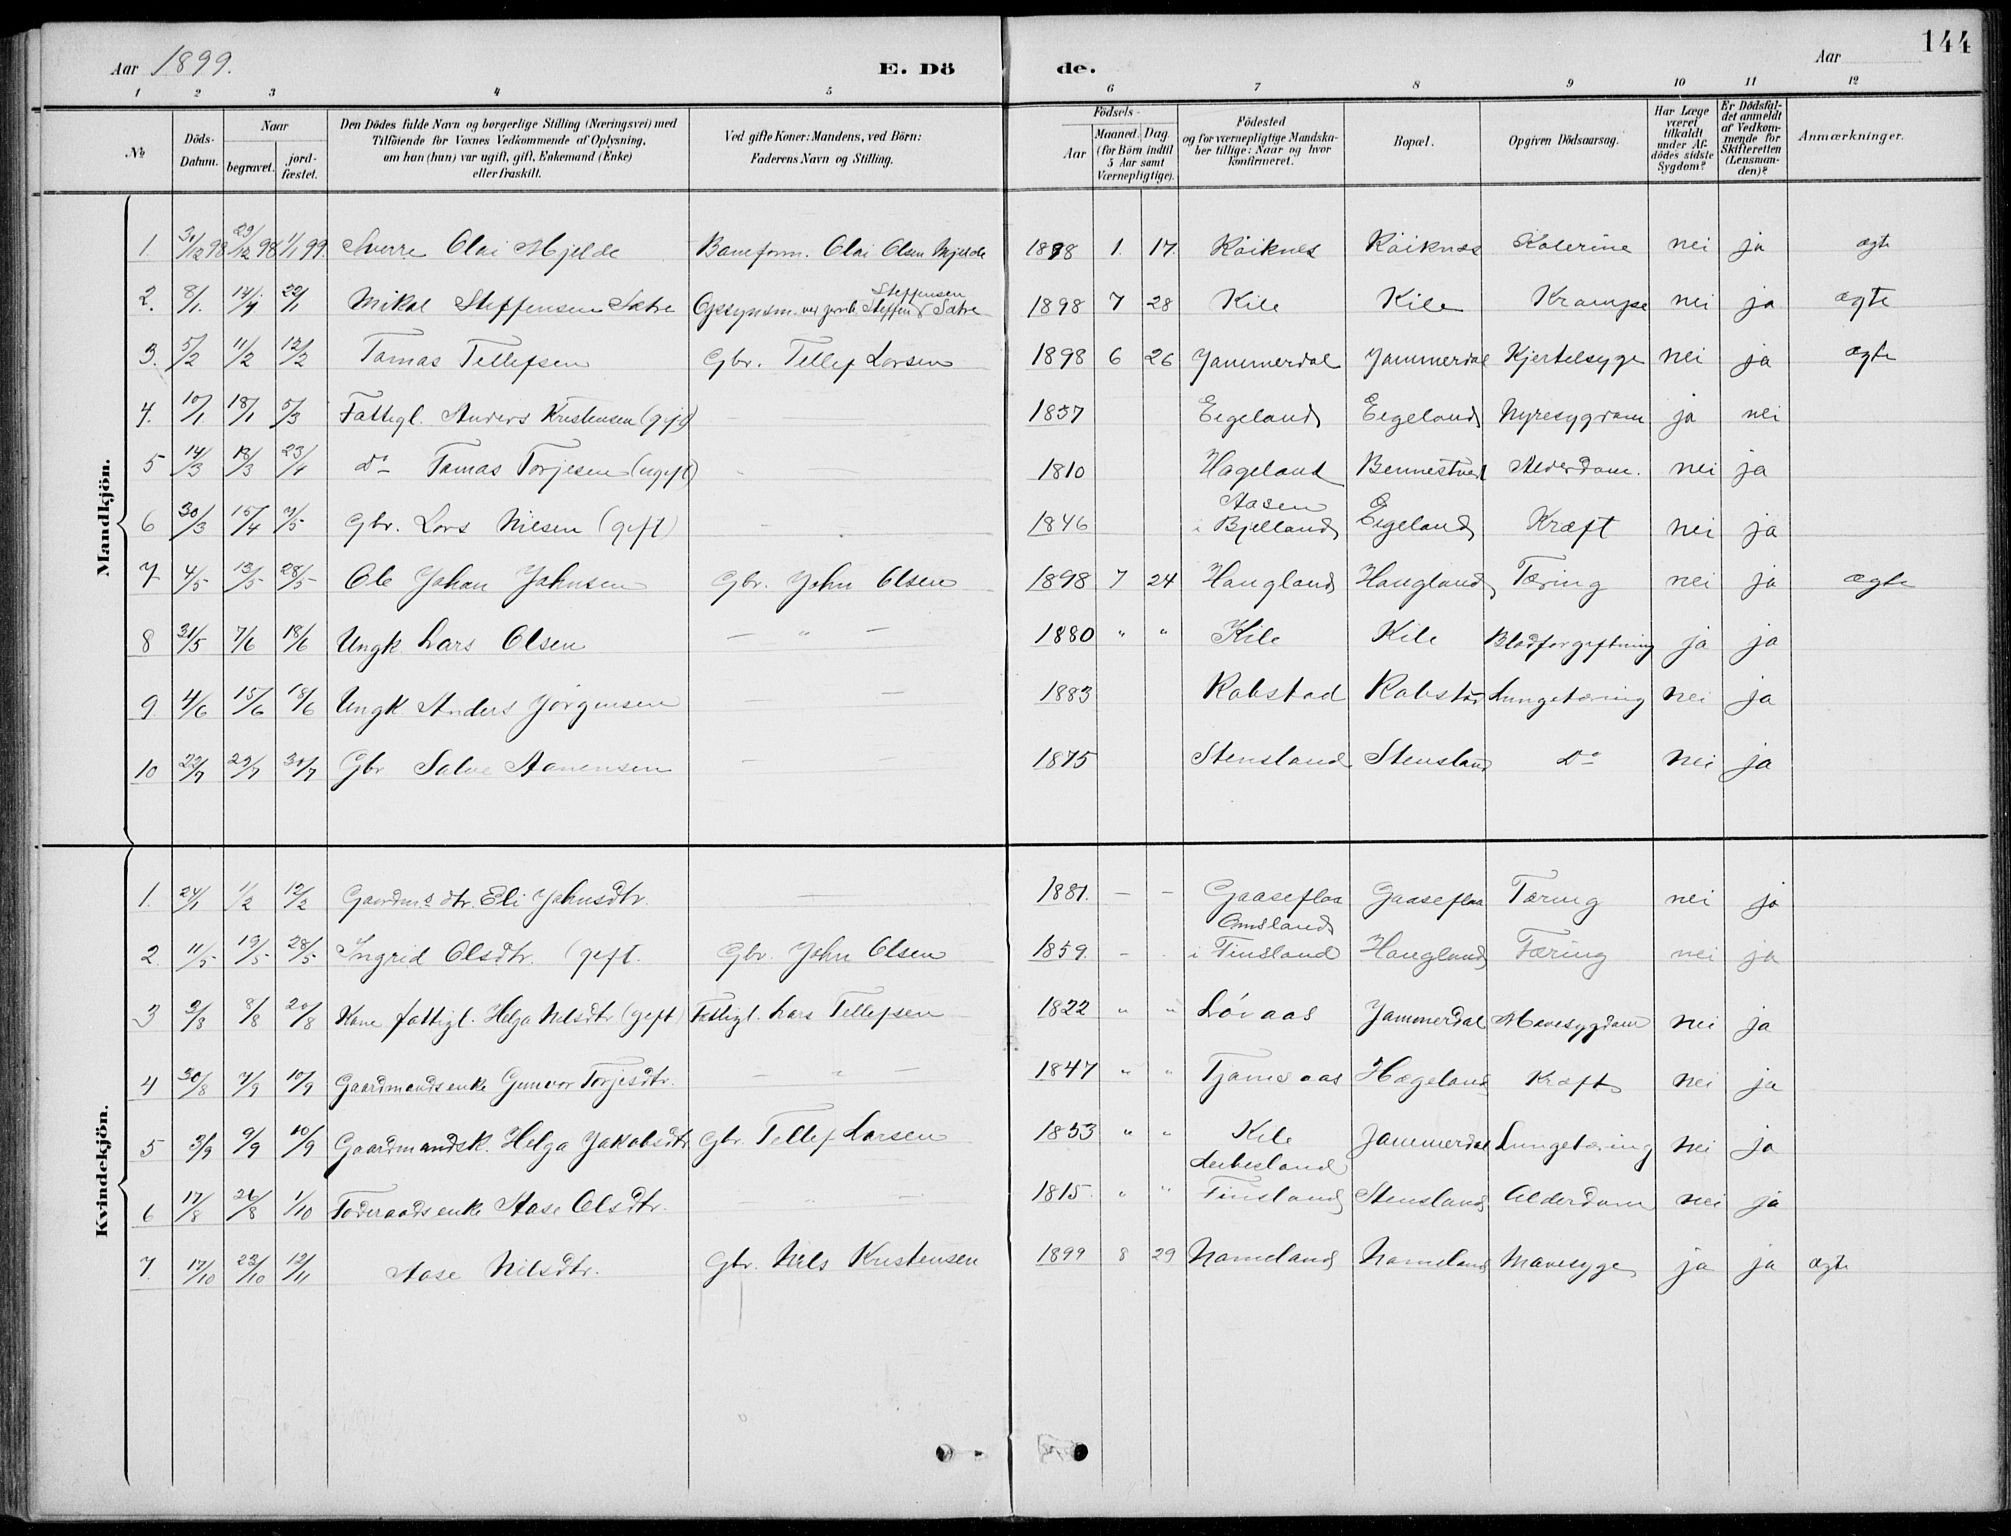 Aar 1899. E. Dö de. Aar 144
1 2 3 4 5 6 7 8 9 10 11 12
No
Döds-Datum.
Naar
begravet.
jord-fæstet.
Den Dödes fulde Navn og borgerlige Stilling (Næringsvei) med
Tilföiende for Voxnes Vedkommende af Oplysning,
om han (hun) var ugift, gift, Enkemand (Enke)
eller fraskilt.
Ved gifte Koner: Mandens, ved Börn:
Faderens Navn og Stilling.
Födsels-
Aar
Maaned. Dag.
(for Börn indtil
5 Aar samt
Værnepligtige).
Födested
og for værnepligtige Mandska-
ber tillige: Naar og hvor
konfirmeret.
Bopæl.
Opgiven Dödsaarsag.
Har Læge
været
tilkaldt
under Af-
dödes sidste
Sygdom?
Er Dödsfal-
det anmeldt
af Vedkom-
mende for
Skifteretten
(Lensman-
den)?
Anmærkninger.
Mandkjön.
1. 31/12 98 29/12 98 1/1 99. Sverre Olai Mjelde Olai Olsen Mjelde 1898 1. 17. Röiknes Röiknes Kolerine nei ja ægte
2. 8/1. 14/1 22/1 Mikal Steffensen Sætre Opsynsm. ved Steffen Steffensen Sætre 1898 7 28 Kile Kile Krampe nei ja ægte
3. 5/2 11/2 12/2 Tomas Tellefsen Gbr. Tellef Larsen 1898 6 26 Jammerdal Jammerdal Kjertelsyge nei ja ægte
4. 10/1 18/1 5/3 Fattigl. Anders Kristensen (gift) – 1837 Eigeland Eigeland Nyresygdom ja nei
5 14/3 18/3 23/4 do Tomas Torjesen (ugift) – 1810 Hageland Bennestvedt Alderdom. nei ja
6 30/3 15/4 7/5 Gbr. Lars Nilsen (gift) – 1846 Aasen i Bjelland Eigeland Kræft nei ja
7 4/5 13/5 28/5 Ole Johan Johnsen Gbr. John Olsen 1898 7 24 Haugland Haugland Tæring nei ja ægte
8 31/5 7/6 18/6 Ungk Lars Olsen – " – 1880 " " Kile Kile Blodforgiftning ja ja
9 4/6 15/6 18/6 Ungk Anders Jörgensen – – 1883 Robstad Robstad Lungetæring nei ja
10 22/7 29/7 30/7 Gbr Salve Aanensen – – 1875 Stensland Stensland Do nei ja
Kvindekjön.
1. 24/1 1/2 12/2 Gaardms dtr. Eli Johnsdtr. – – 1881. – – Gaaseflaa Gaaseflaa Tæring nei ja
2. 11/5 19/5 28/5 Ingrid Olsdtr. (gift. Gbr. John Olsen 1859. – . Omsland i Finsland Haugland Tæring nei ja
3 2/8 8/8 20/8 Kone fattigl. Helga Nilsdtr (gift) Fattigl. Lars Tellefsen 1822 " " Lövaas Jammerdal Mavesygdom nei ja
4 30/8 7/9 10/9 Gaardmandsenke Gunvor Torjesdtr. – " – 1847 " " Tjomsaas Hægeland Kræft nei ja
5 3/9 9/9 10/9 Gaardmandsk. Helga Jakobsdtr Gbr. Tellef Larsen 1853 " " Kile Jammerdal Lungetæring nei ja
6 17/8 26/8 1/10 Föderaadsenke Aase Olsdtr. – " – 1815. " " Leibesland Finsland Stensland Alderdom nei ja
7. 17/10 23/10 12/11 Aase Nilsdtr. Gbr. Nils Kristensen 1899 8 29 Nomeland Nomeland Mavesyge ja ja ægte